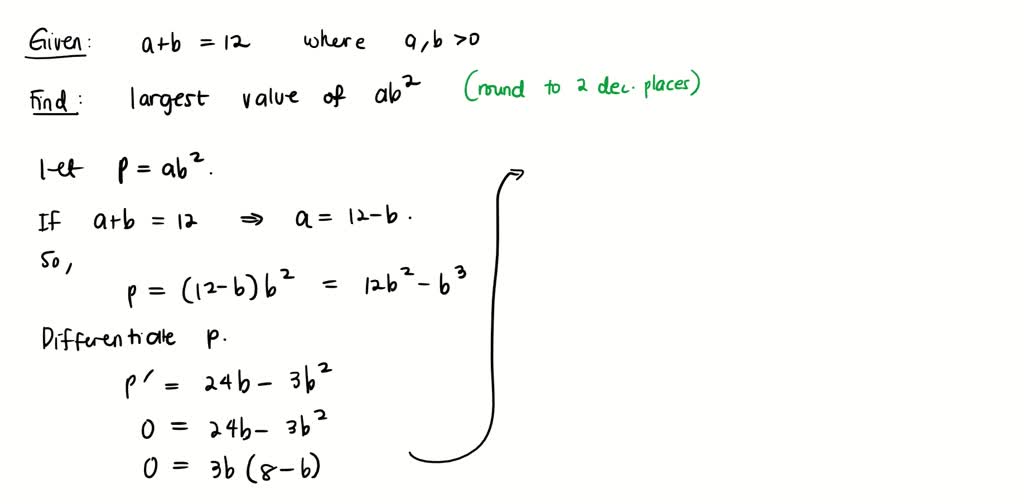 Given: a+b = 12 where a,b >0
Find: largest value of ab² (round to 2 dec. places)
Let p = ab².
If a+b = 12 ⇒ a = 12-b.
So,
p = (12-b)b² = 12b² - b³
Differentiate p.
p' = 24b - 3b²
0 = 24b - 3b²
0 = 3b(8-b)